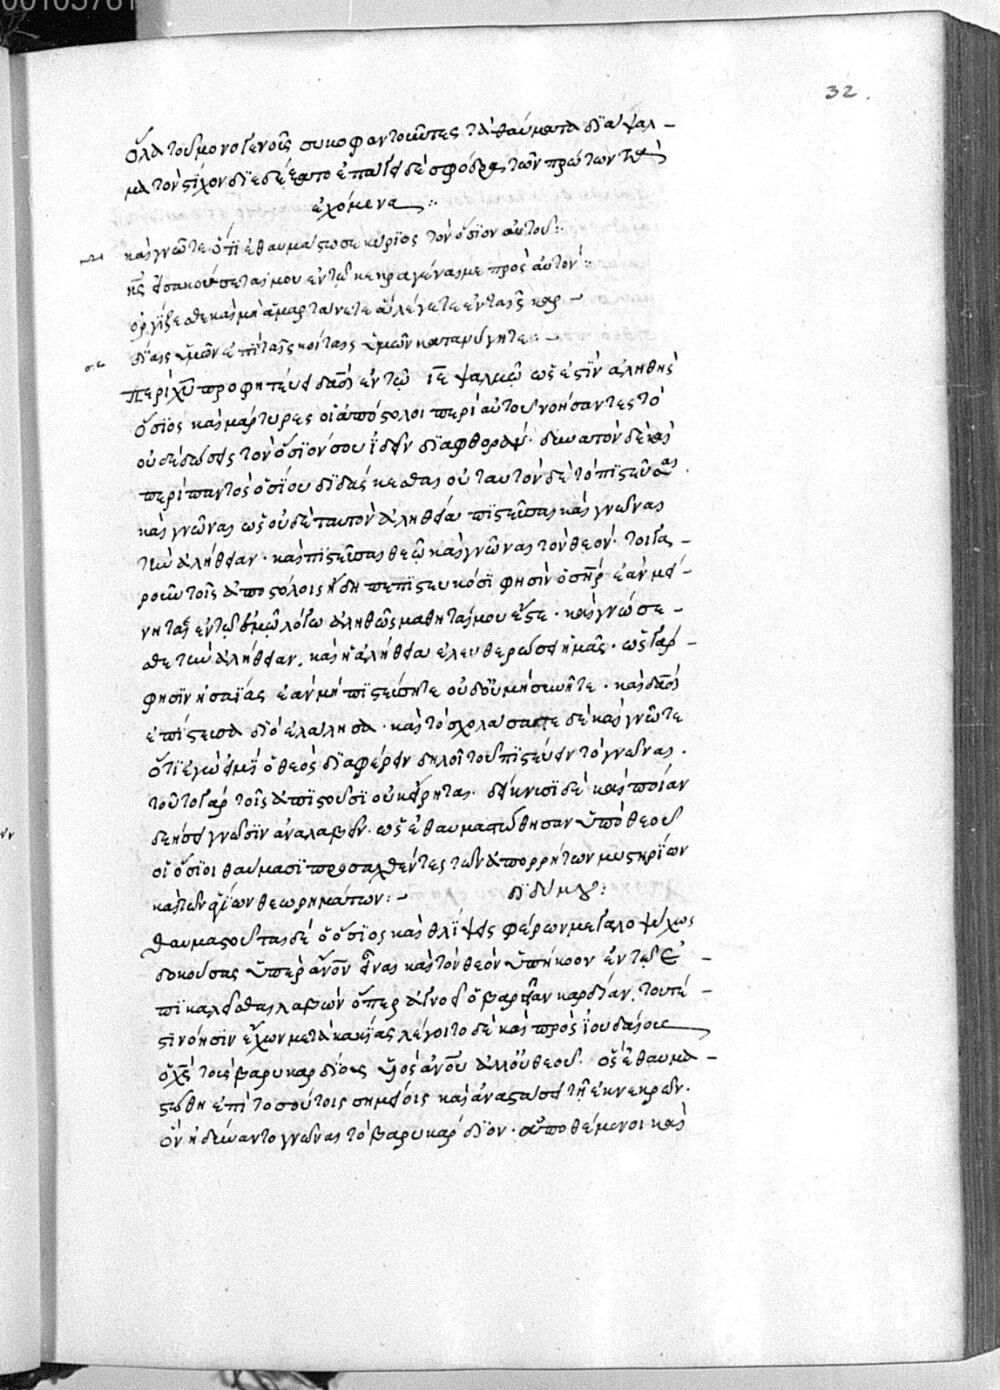 00105761
32.
ὅλα τοῦ μονογενοῦς συκοφαντοῦντες τὰ θαύματα διάψαλ-
μα τὸν στίχον διεδέξατο ἐπάγει δὲ σφόδρα τῶν πρώτων τὰ
ἐχόμενα :
καὶ γνῶτε ὅτι ἐθαυμάστωσε κύριος τὸν ὅσιον αὐτοῦ :
κς εἰσακούσεταί μου ἐν τῷ κεκραγέναι με πρὸς αὐτόν :
ὀργίζεσθε καὶ μὴ ἁμαρτάνετε ἃ λέγετε ἐν ταῖς καρ-
δίαις ὑμῶν ἐπὶ ταῖς κοίταις ὑμῶν κατανύγητε :
περὶ χυ προφητεύει δαδ ἐν τῷ ιε ψαλμῷ ὥς ἐστιν ἀληθὴς
ὅσιος καὶ μάρτυρες οἱ ἀπόστολοι περὶ αὐτοῦ νοήσαντες τὸ
οὐδὲ δώσεις τὸν ὅσιόν σου ἰδεῖν διαφθοράν· δυνατὸν δὲ καὶ
περὶ παντὸς ὁσίου διδάσκεσθαι οὐ ταυτὸν δὲ τὸ πιστεῦσαι
καὶ γνῶναι ὡς οὐδὲ ταυτὸν ἀληθείᾳ πιστεῦσαι καὶ γνῶναι
τὴν ἀλήθειαν· καὶ πιστεῦσαι θεῷ καὶ γνῶναι τὸν θεόν· τοιγα-
ροῦν τοῖς ἀποστόλοις ἤδη πεπιστευκόσι φησὶν ὁ σηρ ἐὰν μεί-
νητε ἐν τῷ ἐμῷ λόγῳ ἀληθῶς μαθηταί μου ἔστε· καὶ γνώσε-
σθε τὴν ἀλήθειαν, καὶ ἡ ἀλήθεια ἐλευθερώσει ἡμᾶς· ὡς γάρ
φησιν ἡσαΐας ἐὰν μὴ πιστεύσητε οὐδ' οὐ μὴ συνῆτε· καὶ δαδ
ἐπίστευσα διὸ ἐλάλησα· καὶ τὸ σχολάσατε δὲ καὶ γνῶτε
ὅτι ἐγώ εἰμι ὁ θεὸς διαφέρειν δηλοῖ τοῦ πιστεύειν τὸ γνῶναι·
τοῦτο γὰρ τοῖς ἀπιστοῦσι οὐκ εἴρηται· δείκνυσι δὲ καὶ ποίαν
δεήσει γνῶσιν ἀναλαβεῖν· ὡς ἐθαυμαστώθησαν ὑπὸ θεοῦ
οἱ ὅσιοι θαυμασίᾳ προσαχθέντες τῶν ἀπορρήτων μυστηρίων
καὶ τῶν θείων θεωρημάτων : διδύμου :
θαυμαστοῦται δὲ ὁ ὅσιος καὶ θλίψεις φέρων μεγαλοψύχως
δοκούσας ὑπὲρ ἄνον εἶναι καὶ τὸν θεὸν ὑπήκοον ἐν τῷ ἐ-
πικαλεῖσθαι λαβὼν ὅπερ ἀγνοεῖ ὁ βαρεῖαν καρδίαν, τουτέ-
στι νόησιν ἔχων μετὰ κακίας λέγοιτο δὲ καὶ πρὸς ἰουδαίους
ὁ χς τοὺς βαρυκαρδίους υἱὸς ἀνου ἀλλ' οὐ θεοῦ· ὃς ἐθαυμα-
στώθη ἐπὶ τοσούτοις σημείοις καὶ ἀναστάσει τῇ ἐκ νεκρῶν·
ὃν ἠδύναντο γνῶναι τὸ βαρυκάρδιον· ἀποθέμενοι καὶ